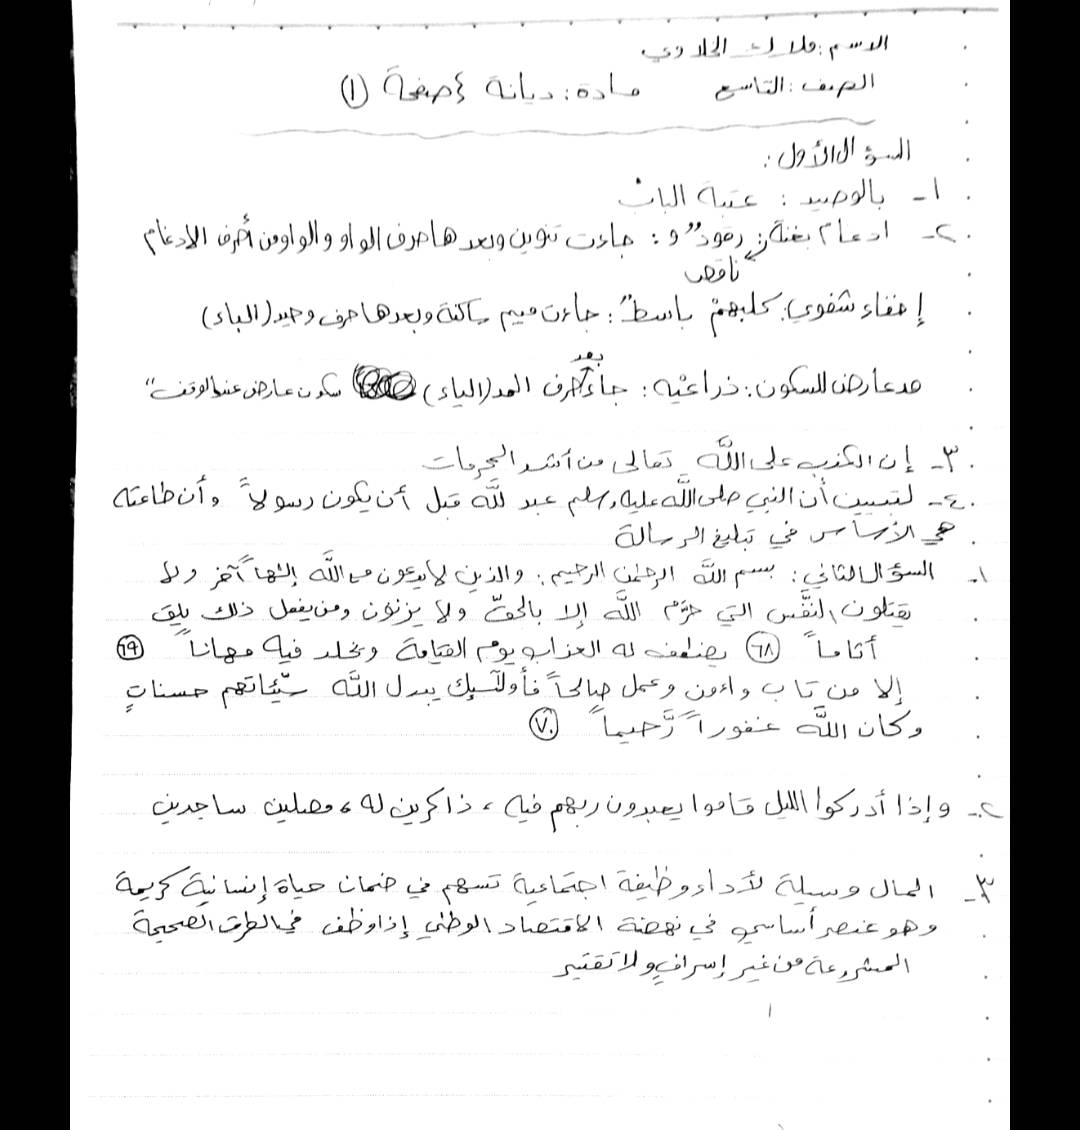 الاسم: ملاك الحلاوي
الصف: التاسع مادة: ديانة صفحة (١)
السؤال الأول:
١- بالوصيد: عتبة الباب
٢- ادغام بغنة: رقودٌ و: جاءت تنوين وبعدها حرف الواو والواو من أحرف الادغام
ناقص
إخفاء شفوي: كلبهمْ باسطٌ: جاءت ميم ساكنة وبعدها حرف وحيد (الباء)
مد عارض للسكون: ذراعيْه: جاء بعد حرف المد (الياء) سكون عارض عند الوقف"
٣- إن الكذب على اللَّه تعالى من أشد المحرمات
٤- لتبيين أن النبي صلى اللَّه عليه وسلم عبد للَّه قبل أن يكون رسولاً، وأن طاعته
هي الأساس في تبليغ الرسالة
السؤال الثاني: ١- بسم اللَّه الرحمٰن الرحيم: والذين لا يدعون مع اللَّه إلٰهاً آخر ولا
يقتلون النَّفس التي حرَّم اللَّه إلا بالحقّ ولا يزنون ومن يفعل ذلك يلق
أثاماً (٦٨) يضٰعف له العذاب يوم القيامة ويخلد فيه مهاناً (٦٩)
إلا من تاب وءامن وعمل صالحاً فأولٓئك يبدل اللَّه سيِّئاتهم حسناتٍ
وكان اللَّه غفوراً رَّحيماً (٧٠)
٢- وإذا أدركوا الليل قاموا يعبدون ربهم فيه، ذاكرين له، مصلين ساجدين
٣- المال وسيلة لأداء وظيفة اجتماعية تسهم في ضمان حياة إنسانية كريمة
وهو عنصر أساسي في نهضة الاقتصاد الوطني إذا وظف في الطرق الصحيحة
المشروعة من غير إسرافٍ ولا تقتير